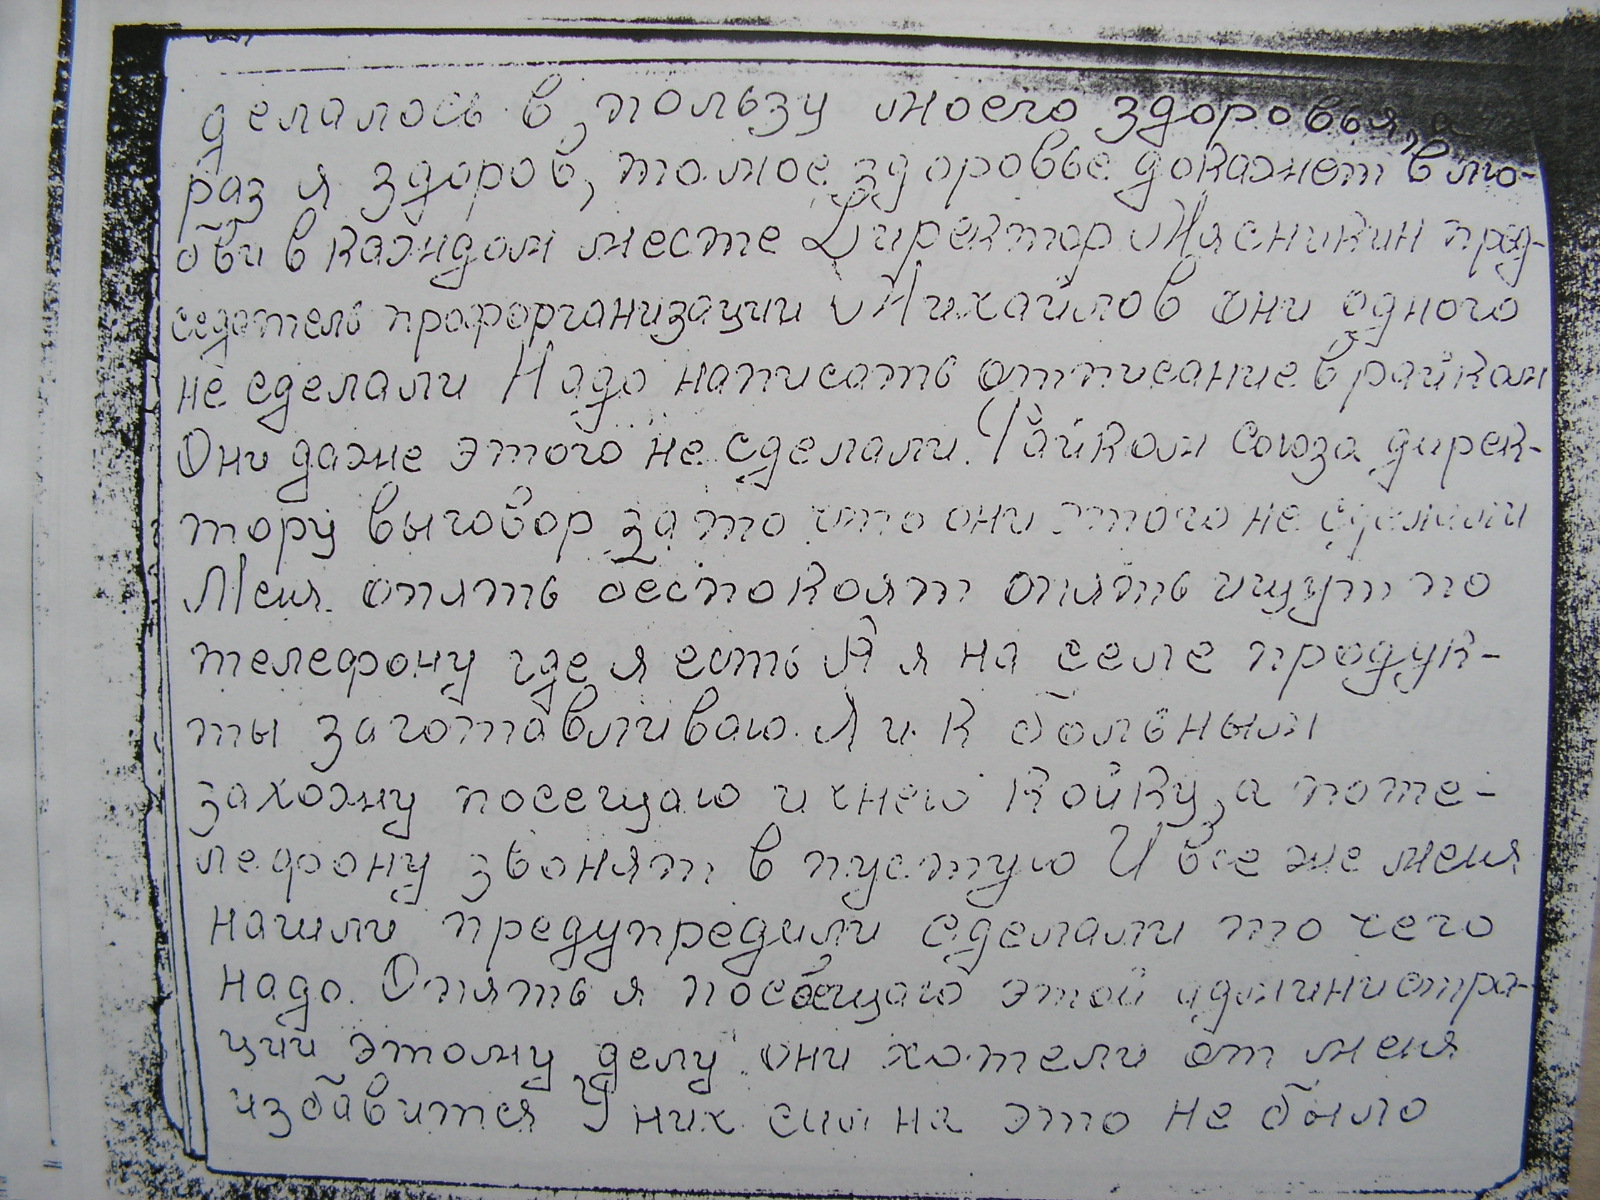 делалось в пользу моего здоровья, а
раз я здоров, то мое здоровье докажет в лю-
бви в каждом месте Директор Мясникин пред-
седатель профорганизации Михайлов они одного
не сделали Надо написать отписание в райком
Они даже этого не сделали. Райком союза дирек-
тору выговор за то что они этого не сделали
Меня опять беспокоят опять ищут по
телефону где я есть А я на селе продук-
ты заготавливаю. Я и к больным
захожу посещаю и хнею койку, а по те-
лефону звонят в пустую И все же меня
нашли предупредили сделали то чего
надо. Опять я посещаю этой администра-
ции этому делу они хотели от меня
избавится У них сил на это не было